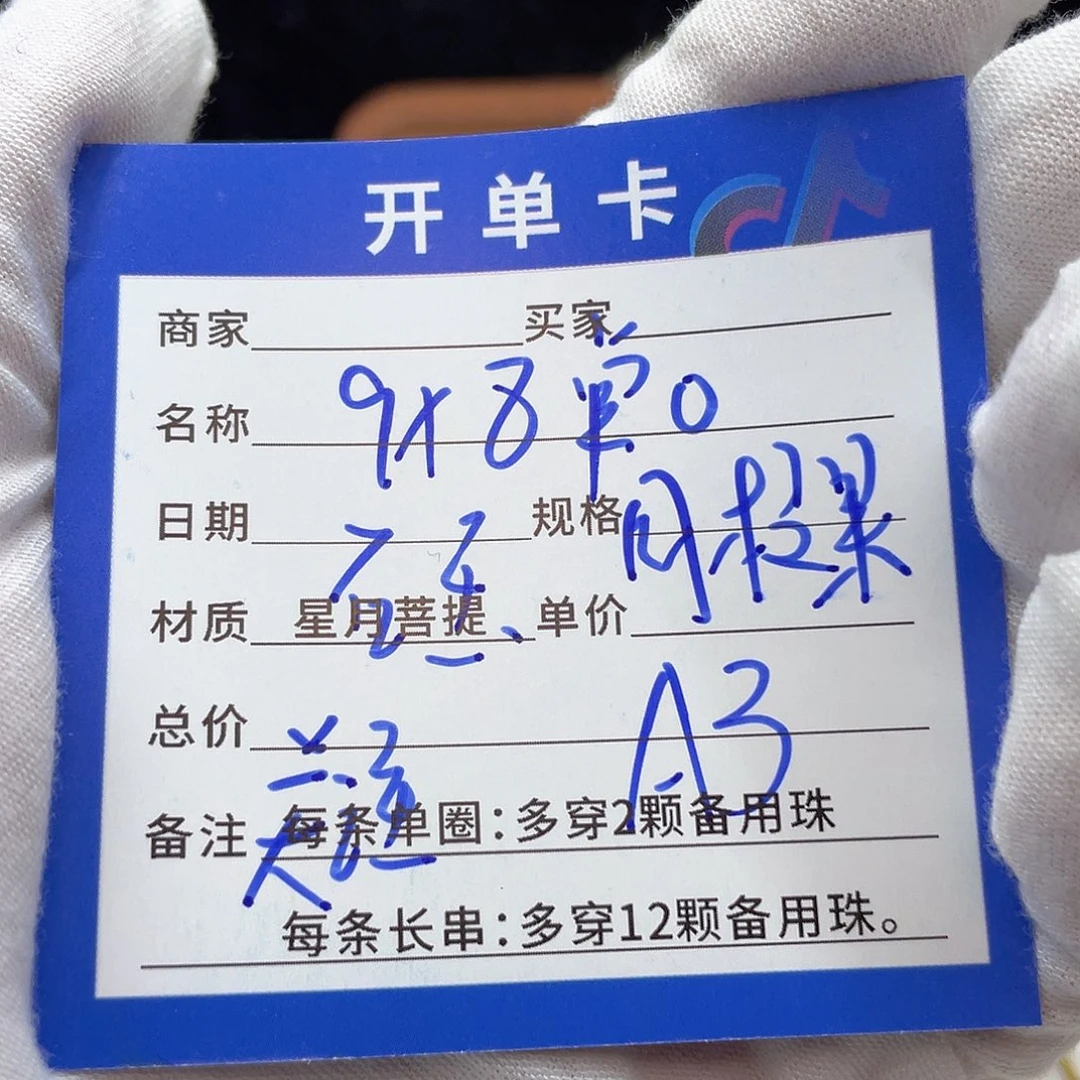 开单卡
商家 买家
名称 9x8单0
日期 规格 同枝果
材质 星月菩提 单价
总价 A3
备注 每条单圈：多穿2颗备用珠
每条长串：多穿12颗备用珠。